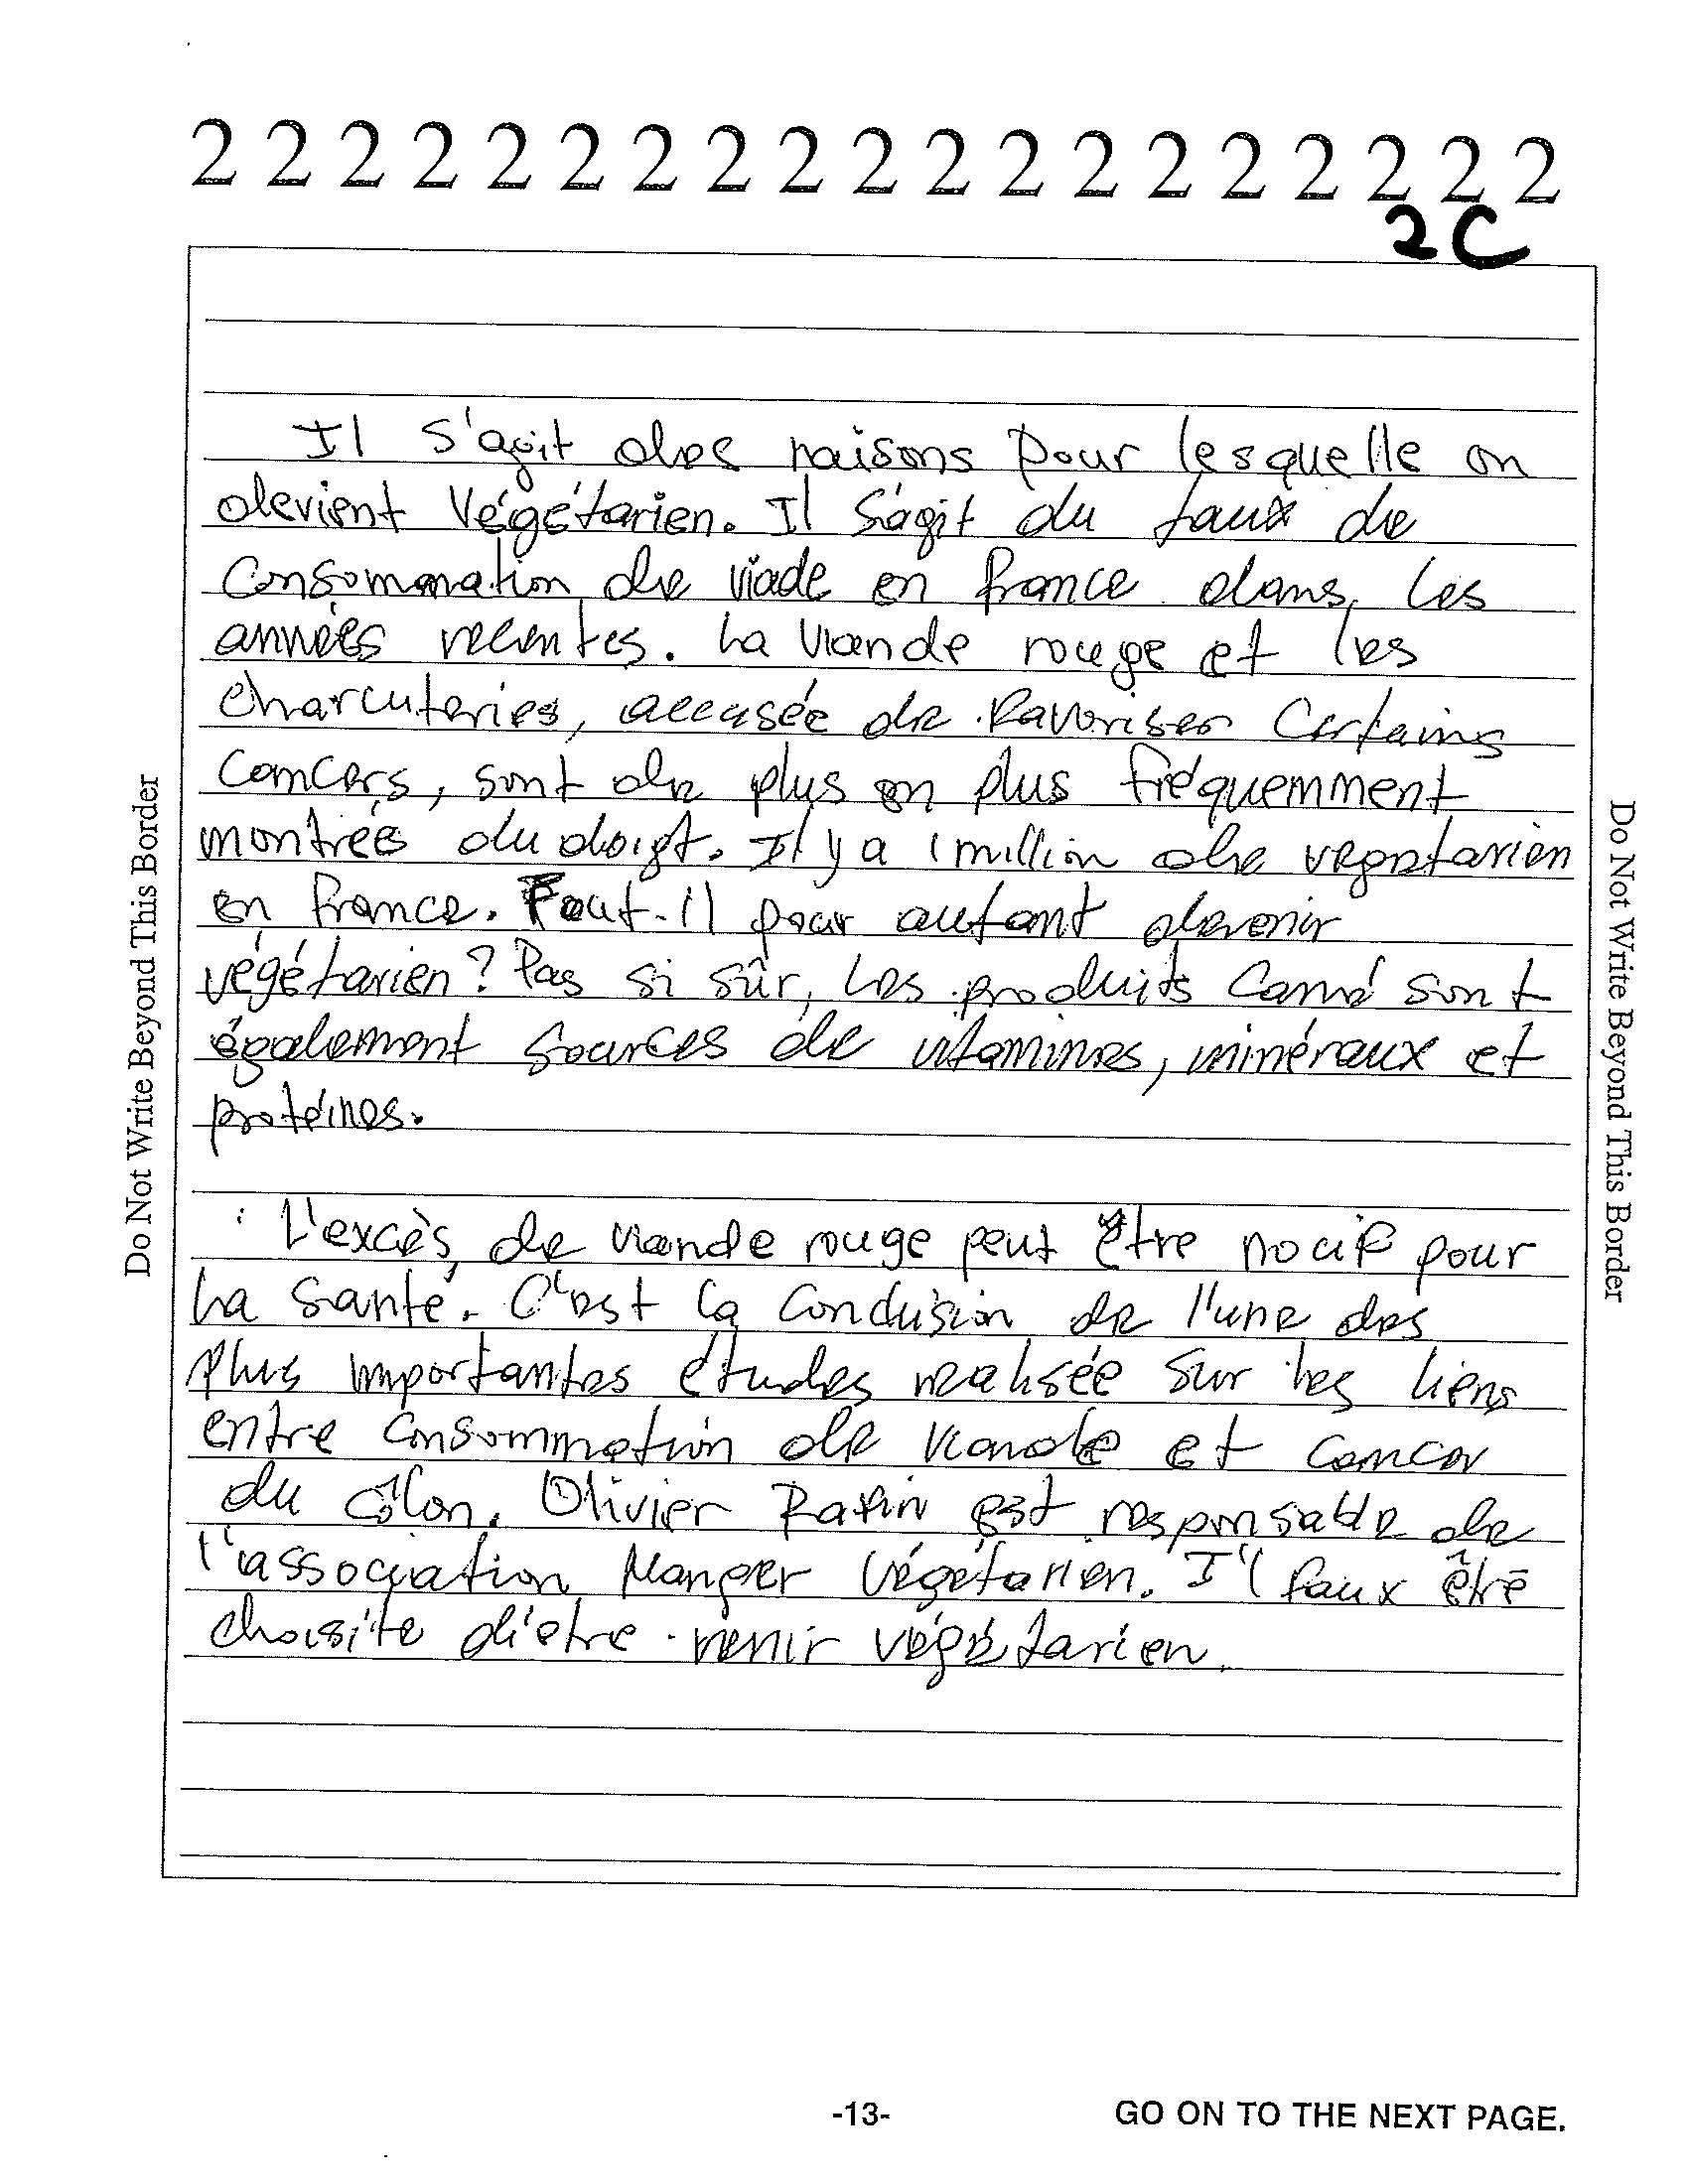 2 2 2 2 2 2 2 2 2 2 2 2 2 2 2 2 2 2 2
2C
Il s'agit des raisons pour lesquelle on
devient végétarien. Il s'agit du taux de
consommation de viade en france dans les
années recentes. La viande rouge et les
charcuteries, accusée de favoriser certains
cancers, sont de plus en plus fréquemment
montrés du doigt. Il y a 1 million de vegetarien
en france. Faut-il pour autant devenir
végétarien? Pas si sûr, Les produits carné sont
également sources de vitamines, minéraux et
protéines.
L'excès de viande rouge peut être nocif pour
la santé. C'est la conclusion de l'une des
plus importantes études realisée sur les liens
entre consommation de viande et cancer
du côlon. Olivier est responsable de
l'association Manger Végétarien. Il faux être
choisite d'etre venir végétarien.
Do Not Write Beyond This Border
Do Not Write Beyond This Border
-13-
GO ON TO THE NEXT PAGE.